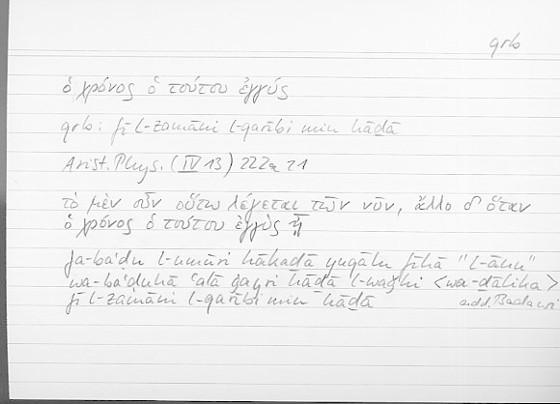 qrb
ὁ χρόνος ὁ τούτου ἐγγύς
qrb: fī l-zamāni l-qarībi min hāḏā
Arist. Phys. (IV 13) 222a 21
τὸ μὲν οὖν οὕτω λέγεται τῶν νῦν, ἄλλο δ' ὅταν
ὁ χρόνος ὁ τούτου ἐγγὺς ᾖ
fa-baʿḍu l-umūri hākaḏā yuqālu fīhā "l-ānu"
wa-baʿḍuhā ʿalā ġayri hāḏā l-waǧhi <wa-ḏālika>
fī l-zamāni l-qarībi min hāḏā add. Badawi